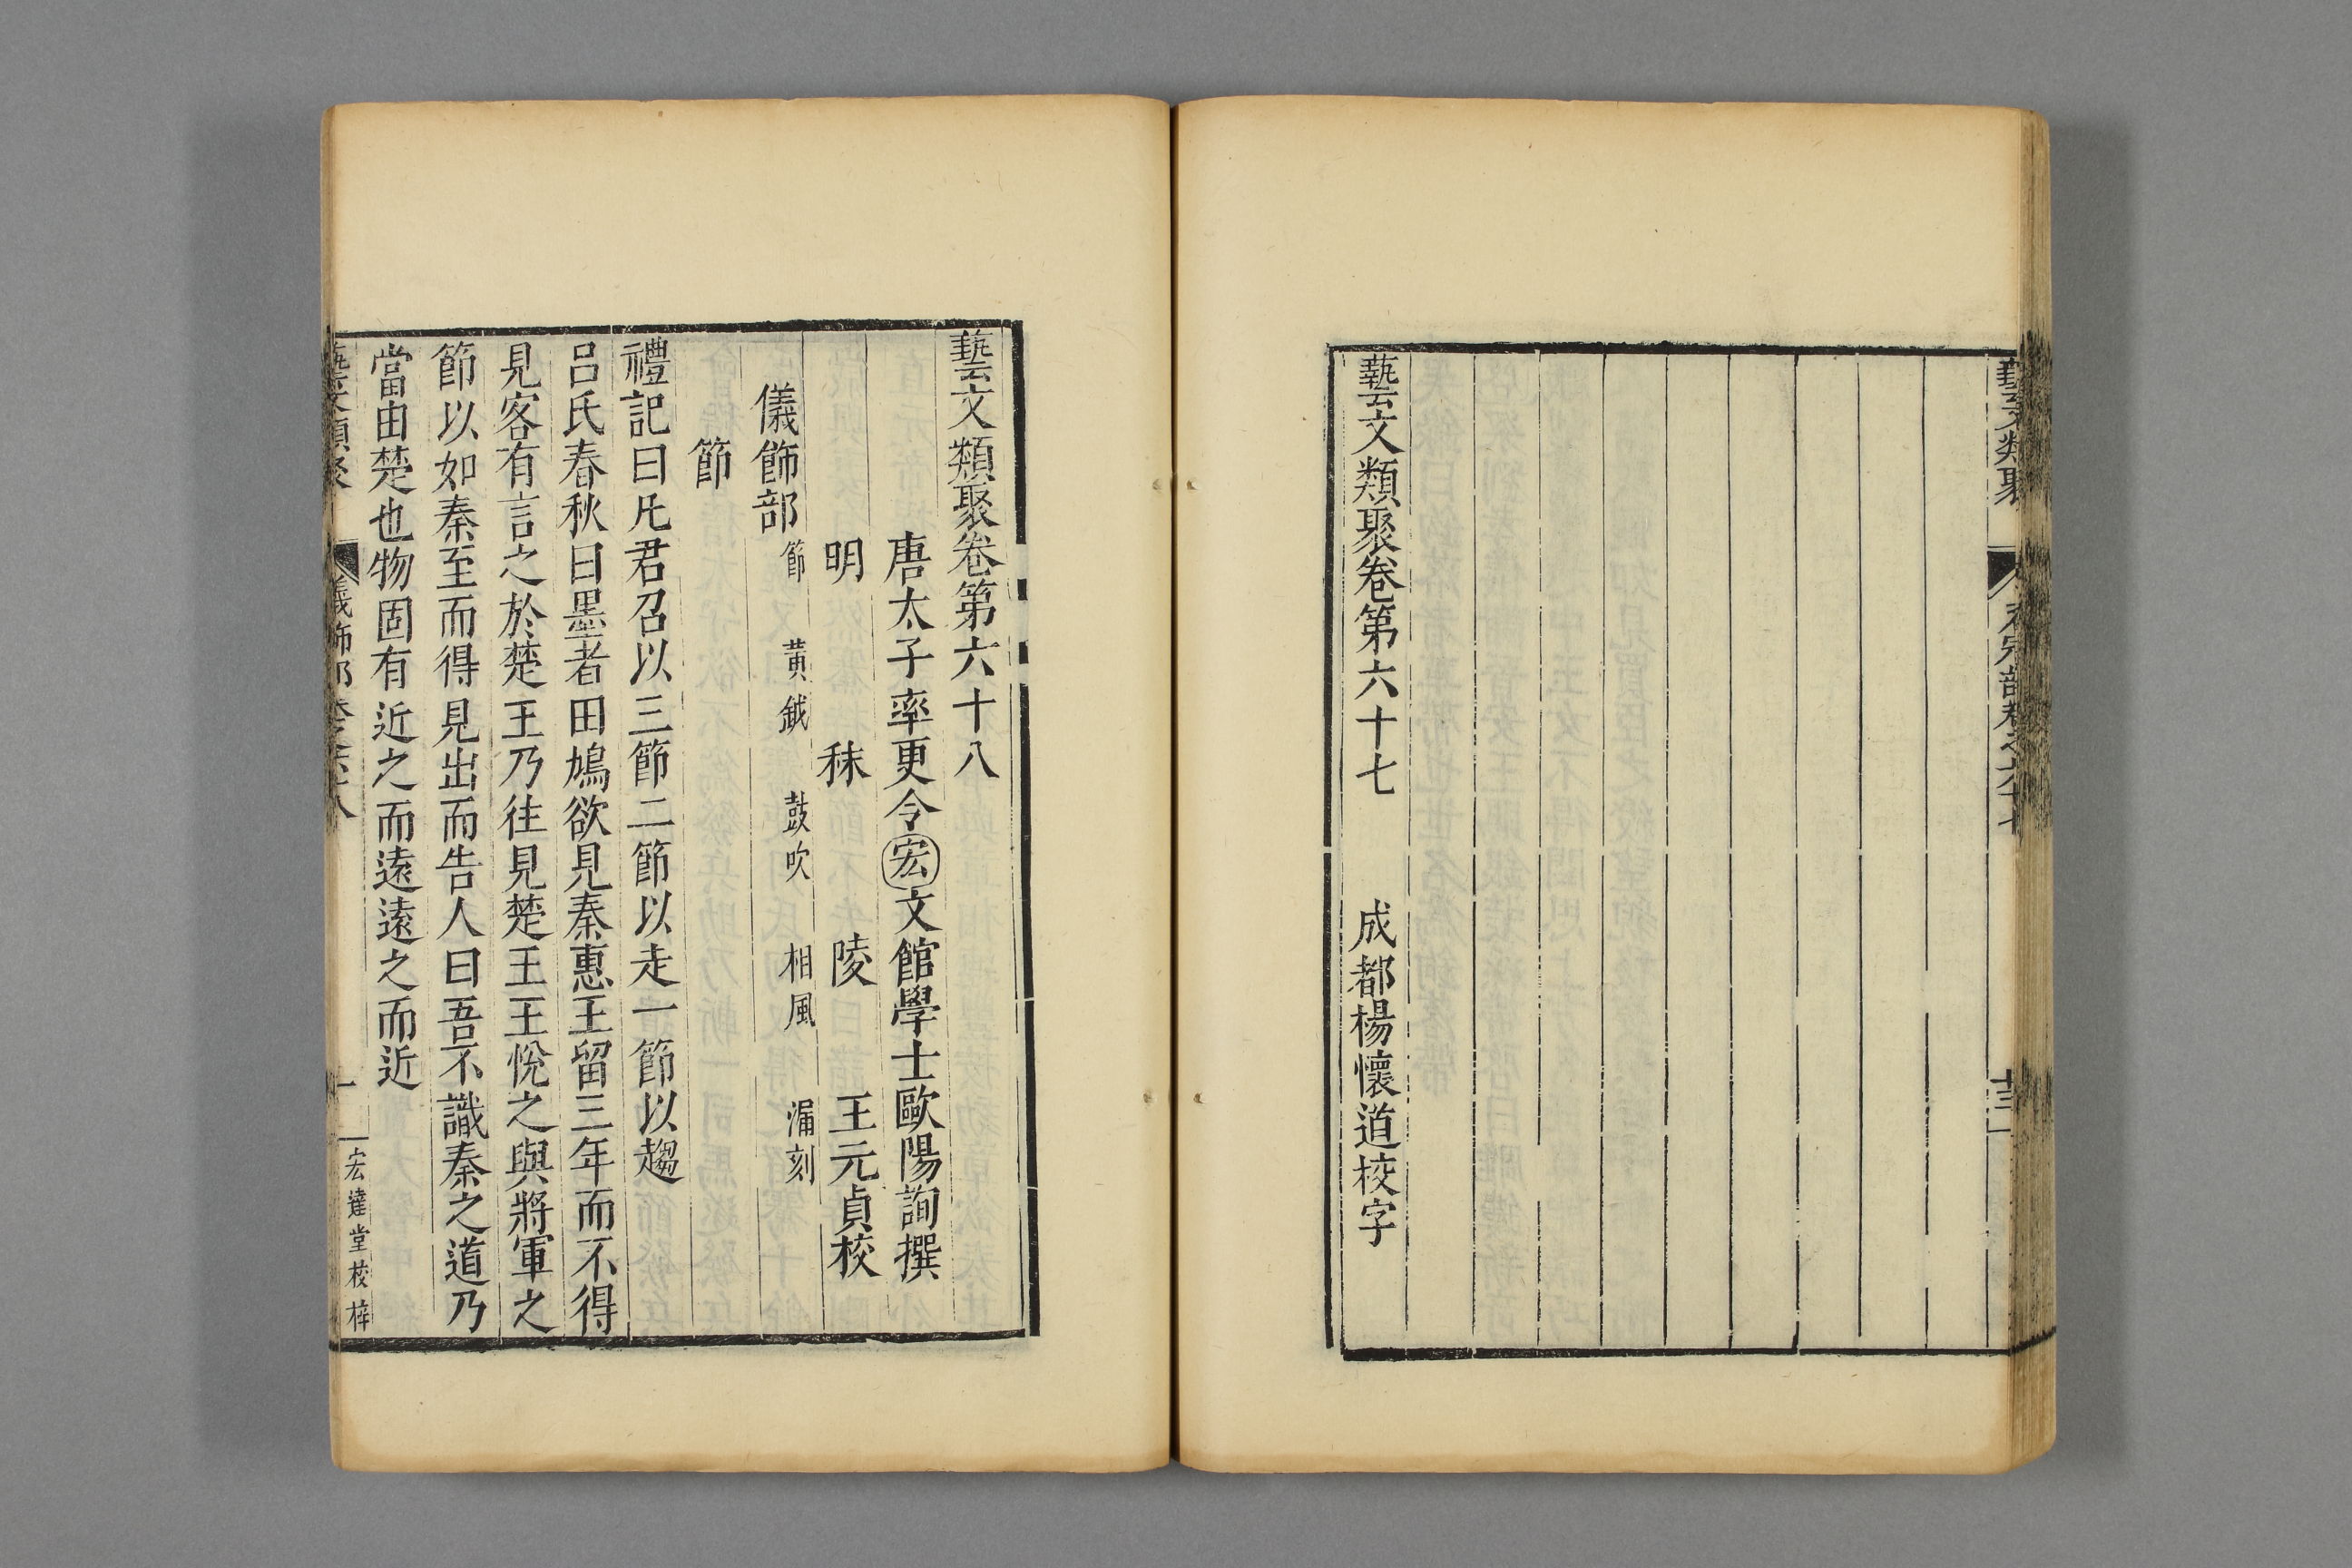 藝文類聚卷第六十七　　成都楊懷道校字
藝文類聚卷第六十八
唐太子率更令宏文館學士歐陽詢撰
明　秣　陵　王元貞校
儀飾部
節　黃鉞　鼓吹　相風　漏刻
節
禮記曰凡君召以三節二節以走一節以趨
呂氏春秋曰墨者田鳩欲見秦惠王留三年而不得
見客有言之於楚王乃往見楚王王悅之與將軍之
節以如秦至而得見出而告人曰吾不識秦之道乃
當由楚也物固有近之而遠遠之而近
藝文類聚　儀飾部卷之六十八　一　宏達堂校梓